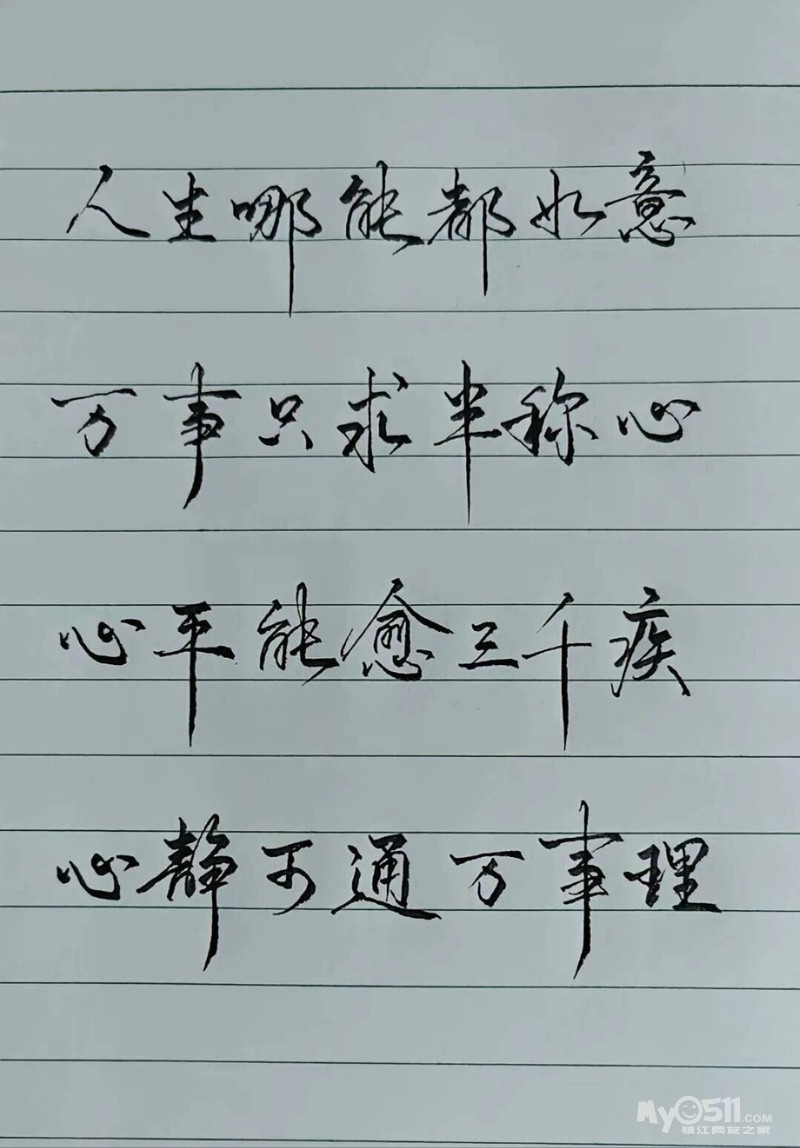 人生哪能都如意
万事只求半称心
心平能愈三千疾
心静可通万事理
My0511.COM
镇江网友之家